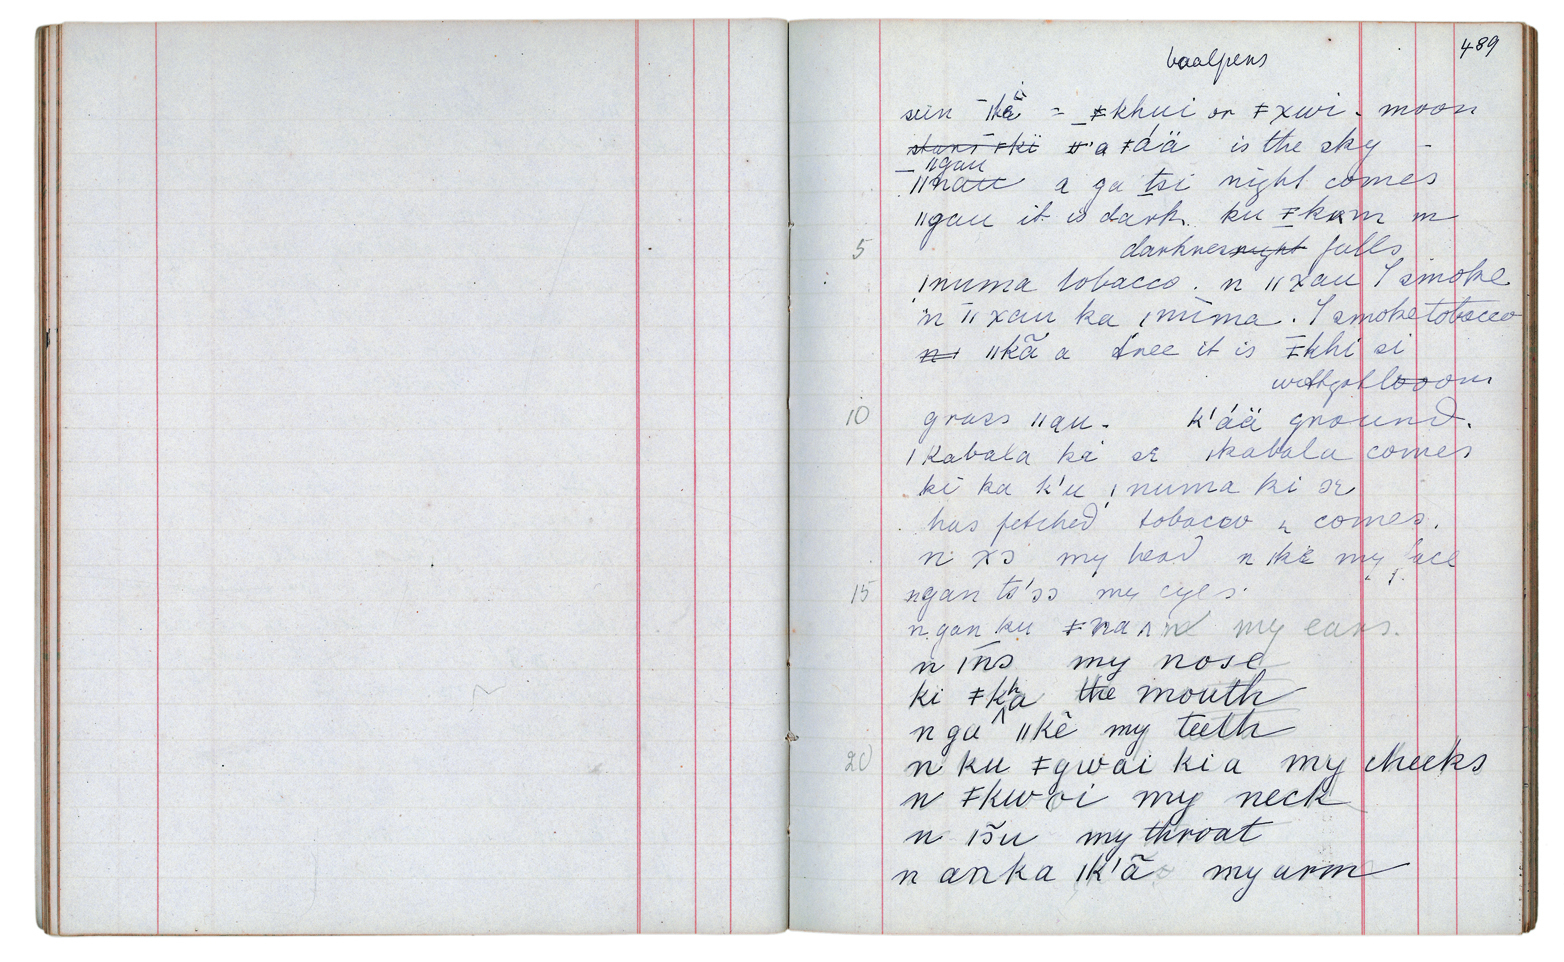 489
vaalpens
sun ǀkä̃ = ǂkhui or ǂxwi. moon
stars ǂkï a ǂáä is the sky -
ǁgau
ǁnau a ga tsi night comes
ǁgau it is dark. ku ǂkum m
5 darkness night falls
ǀnuma tobacco. n ǁxau I smoke
n ǁxau ka ǀnuma. I smoke tobacco
n ǁkã a tree it is ǂkhi si
10 grass ǁau. k'áä ground.
ǀkabala ki sɛ ǀkabala comes
ki ka k'u ǀnuma ki sɛ
has fetched tobacco & comes.
n xɔ my head n ǀkɛ my face
15 ngan ts'ɔɔ my eyes.
ngan ku ǂna my ears.
n ǀnɔ my nose
ki ǂkha the mouth
n ga ǁkē my teeth
20 n ku ǂgwai kia my cheeks
n ǂkwɔi my neck
n ǀɔ̃u my throat
n anka ǀk'ã my arm